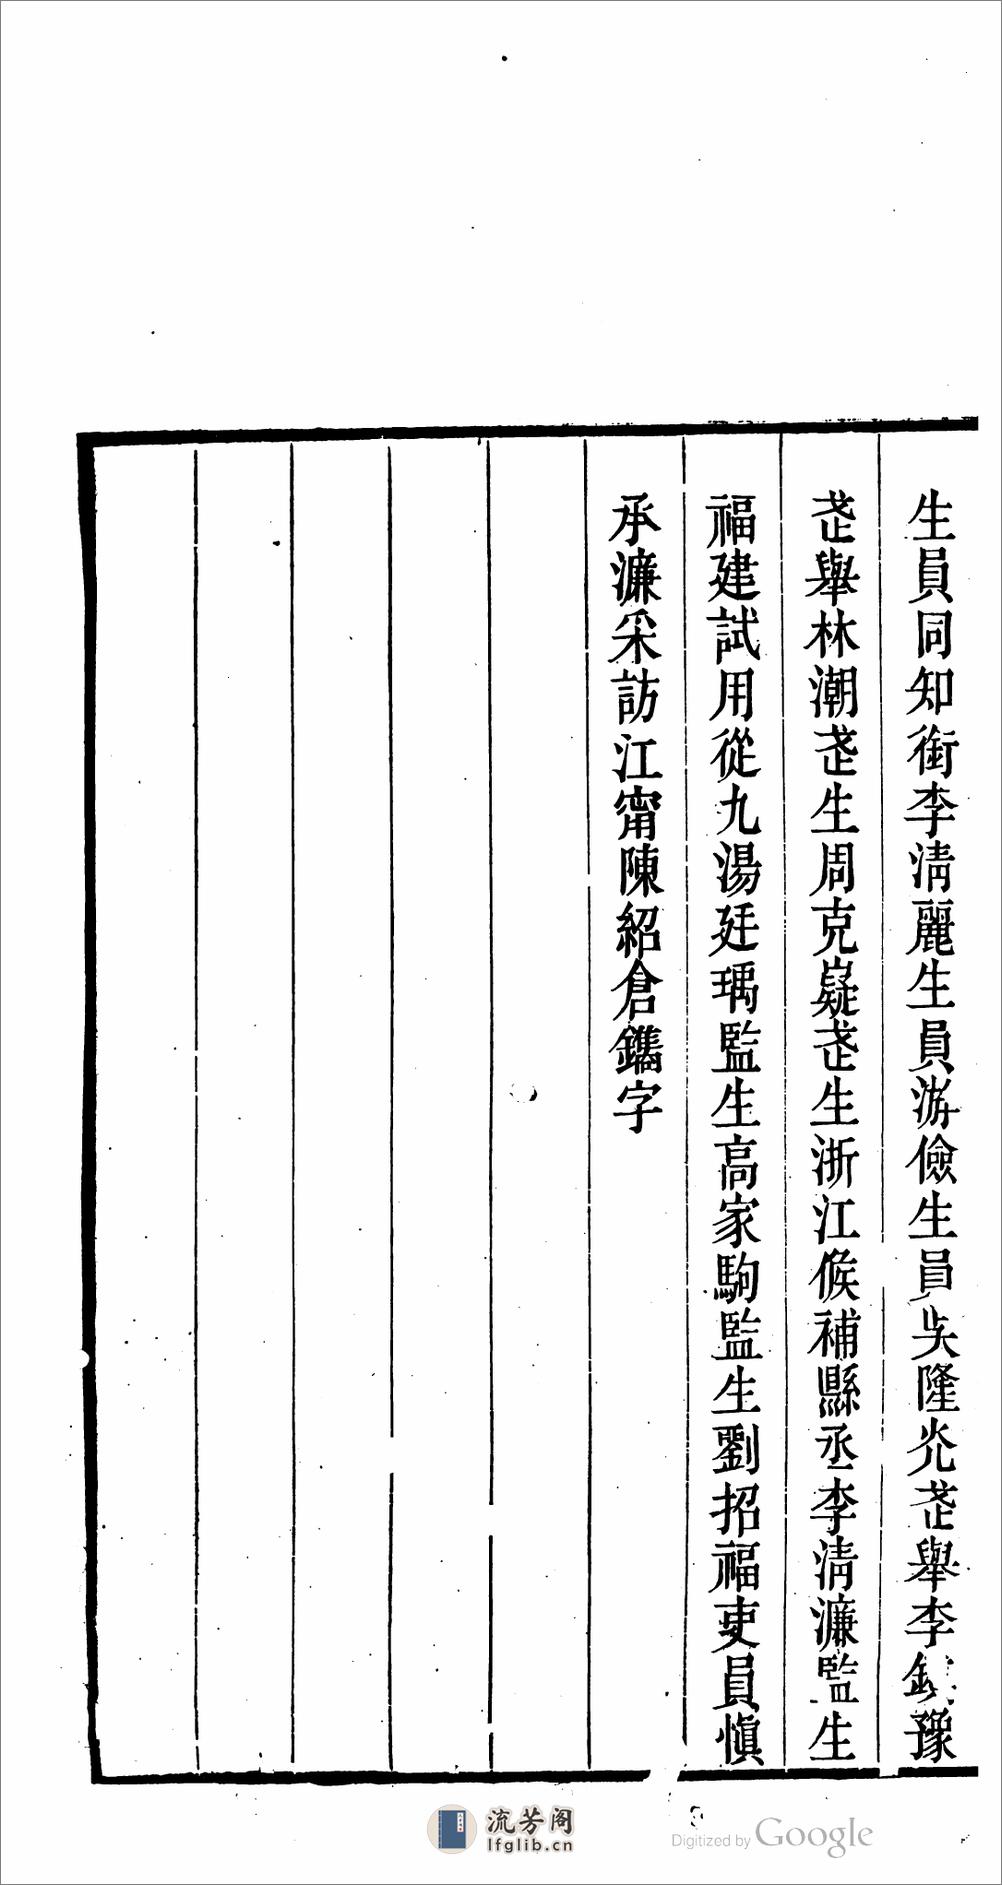 生員同知銜李淸麗生員游儉生員吳隆光武舉李豫
武舉林潮武生周克嶷武生浙江候補縣丞李淸濂監生
福建試用從九湯廷瑀監生高家駒監生劉招福吏員愼
承濂采訪江甯陳紹倉鐫字
流芳阁
lfglib.cn
Digitized by Google